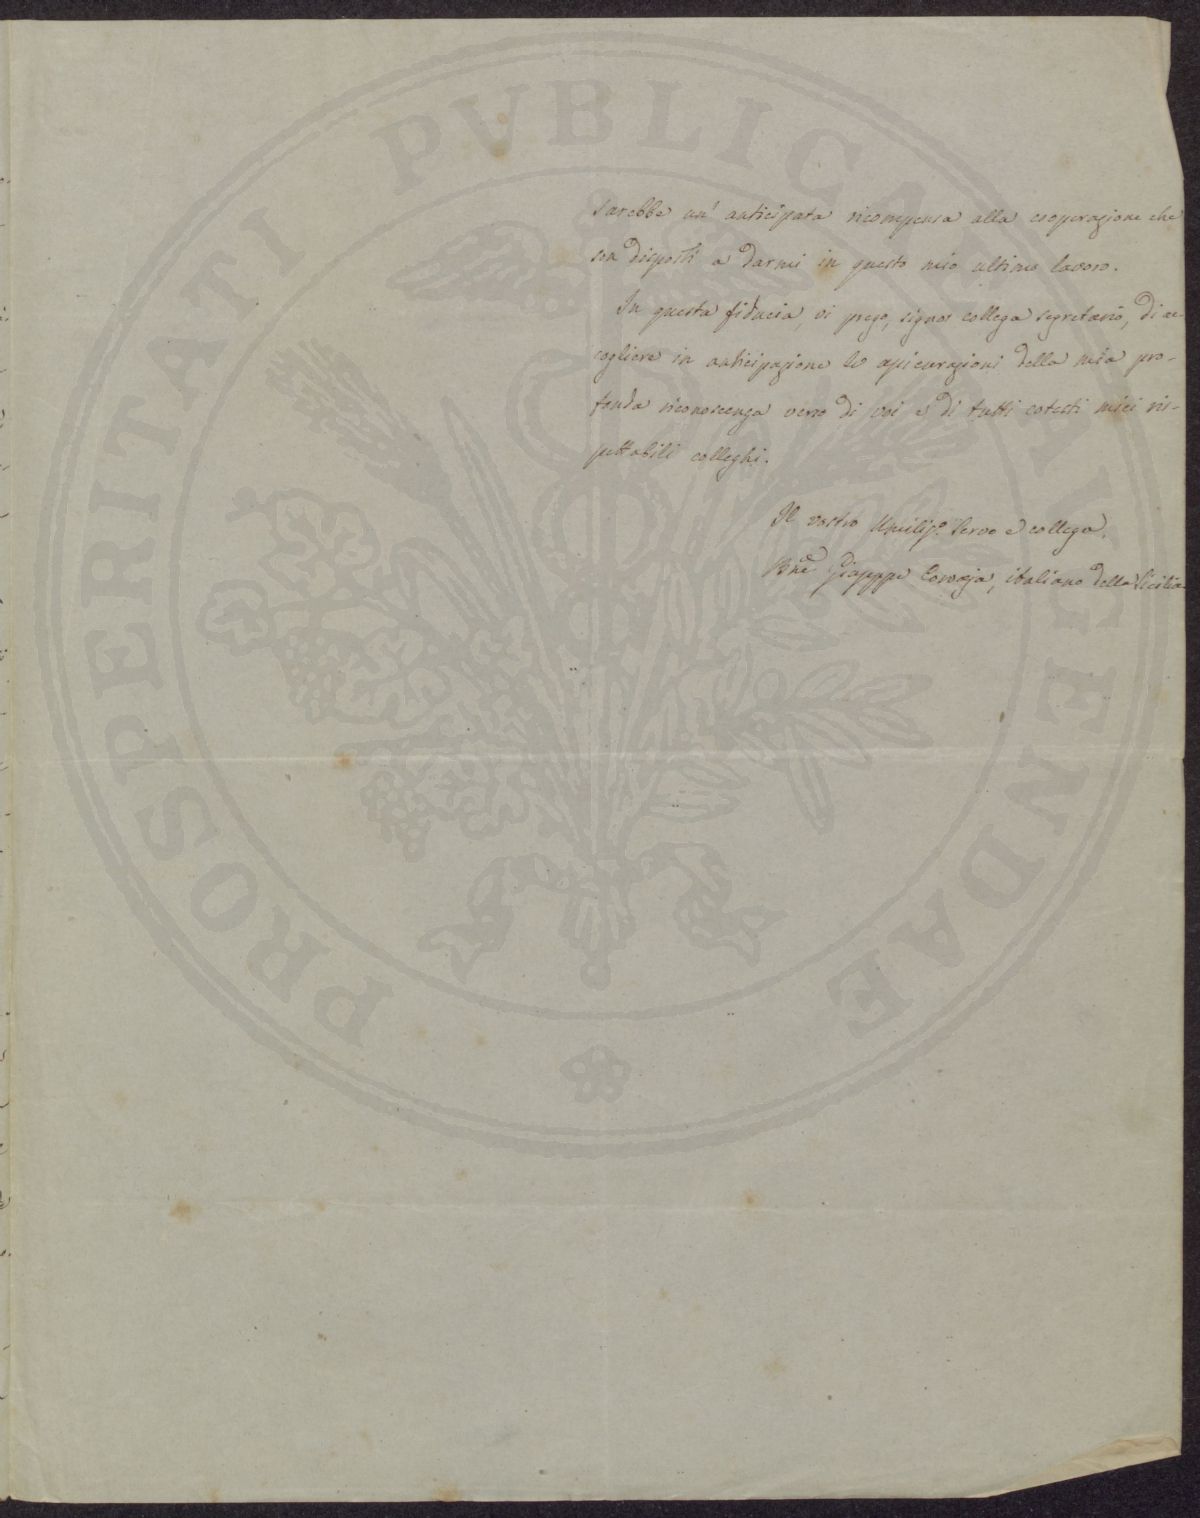 sarebbe un' anticipata ricompensa alla cooperazione che
son disposti a darmi in questo mio ultimo lavoro.
In questa fiducia, vi prego, signor collega segretario, di ac-
cogliere in anticipazione le assicurazioni della mia pro-
fonda riconoscenza verso di voi e di tutti cotesti miei ris-
pettabili colleghi.
Il vostro Umiliss.º Servo e collega.
Bne Giuseppe Corvaja, italiano della Sicilia.
PROSPERITATI PVBLICAE AVGENDAE